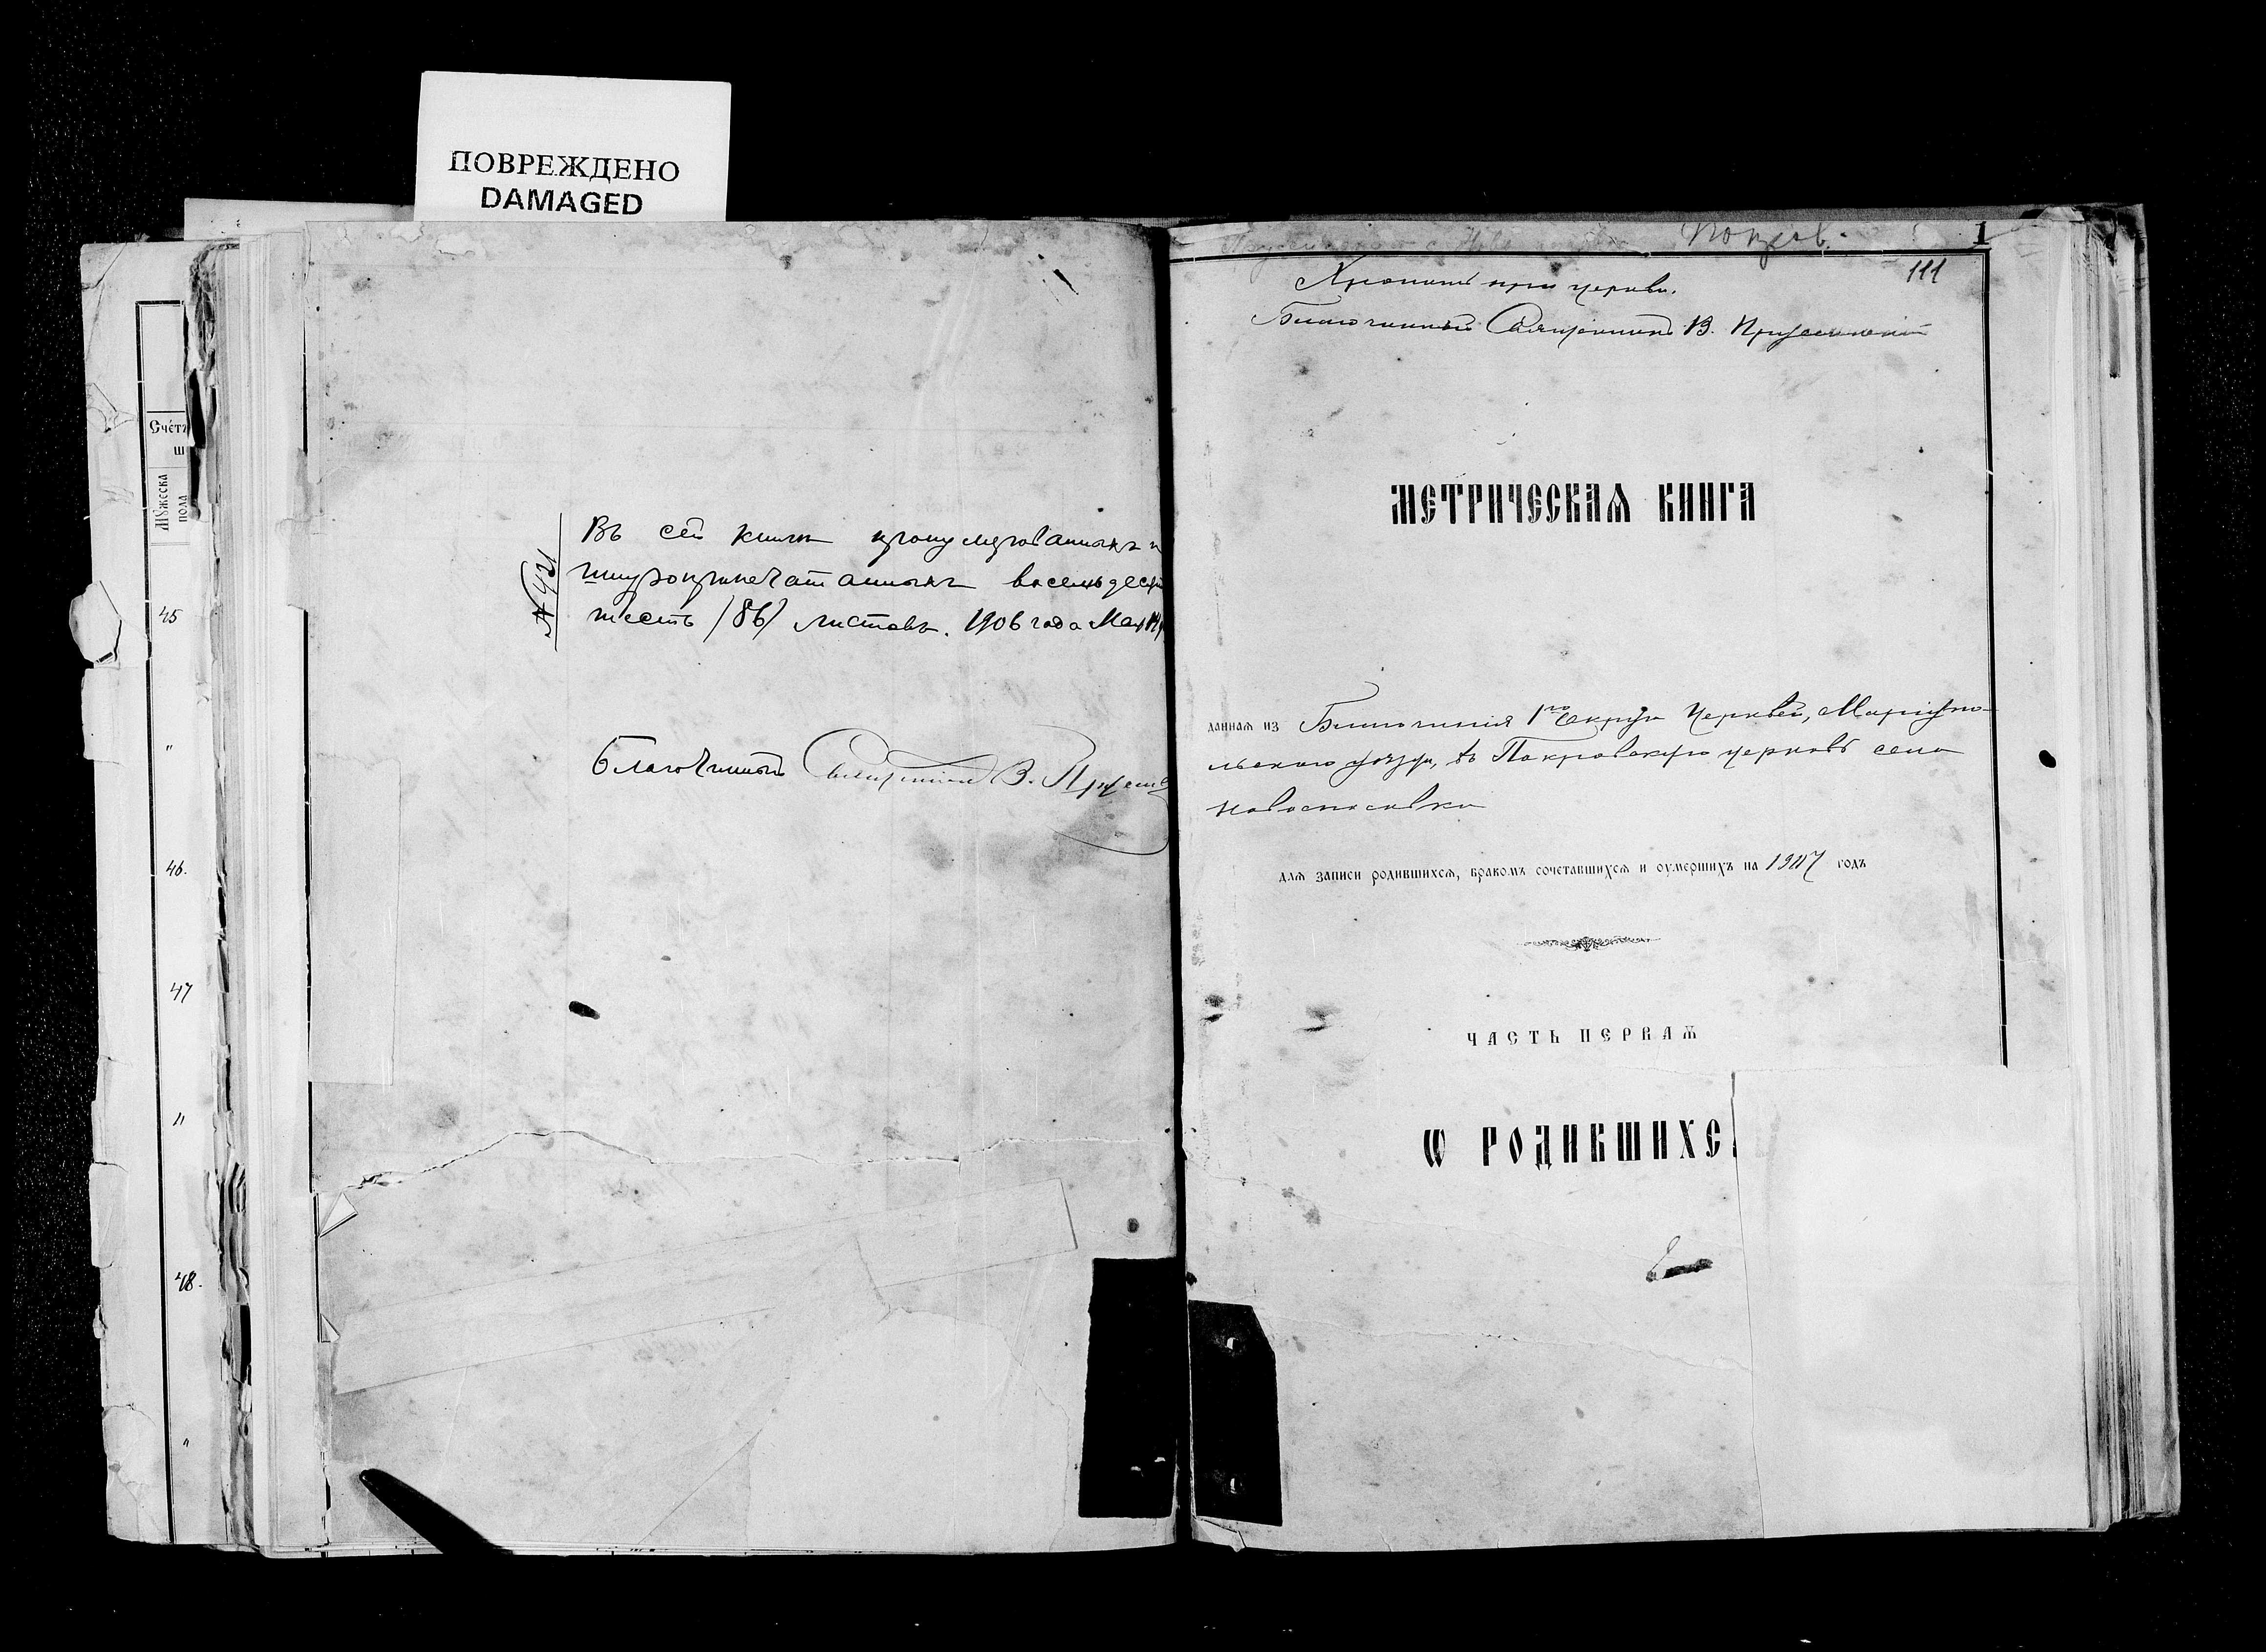 ПОВРЕЖДЕНО
DAMAGED
Счетъ
ш
Мужеска
пола
45
"
46.
47
"
48.
"
№ 421
Въ сей книги пронумерованныхъ и
шнуропрпечатанныхъ восемьдесят
шесть /86/ листовъ. 1906 года Мая
Благочинный Священникъ В.
Покров.
1
111
Хранить при церкви.
Благочинный Священникъ В.
МЕТРИЧЕСКАЯ КНИГА
данная из Благочинія 1го Округа Церквей, Маріупо-
льскаго уѣзда, въ Покровскую церковь села
Новоспасовки
для записи родившихся, бракомъ сочетавшихся и оумершихъ на 1907 годъ
ЧАСТЬ ПЕРВАЯ
Ѡ РОДИВШИХС